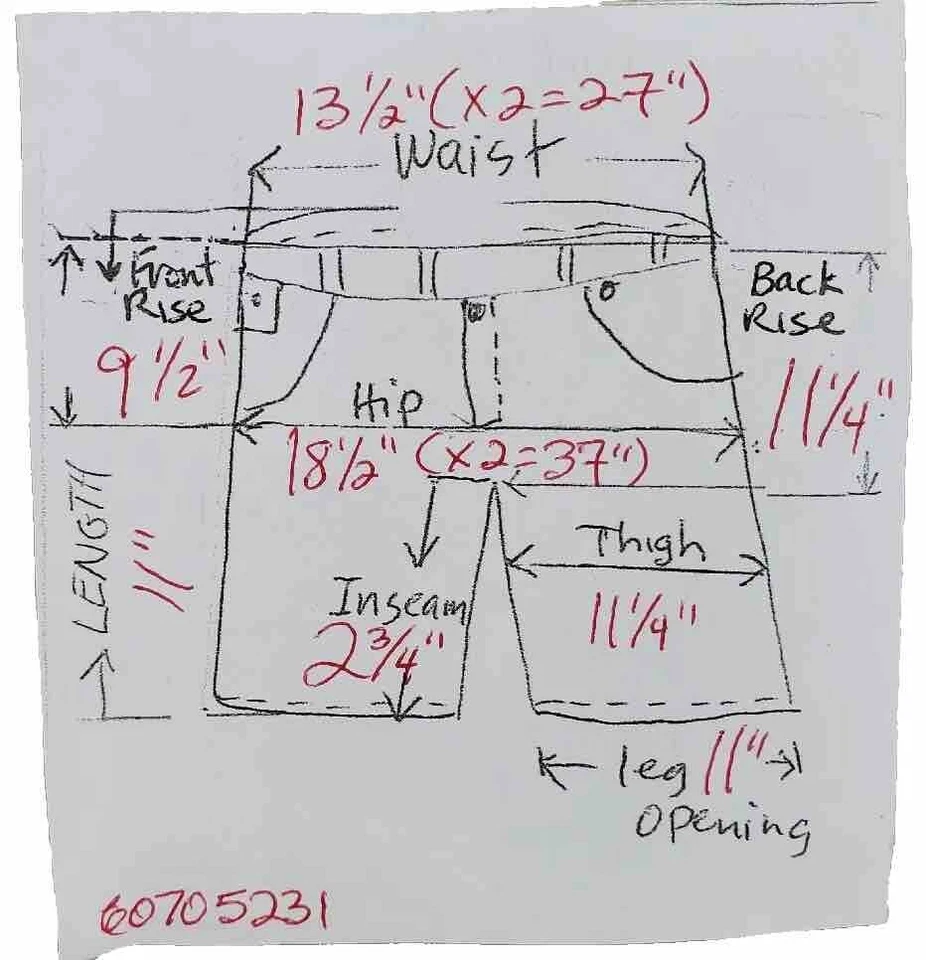 13 1/2" (x2=27")
Waist
Front
Rise
9 1/2"
Back
Rise
11 1/4"
Hip
18 1/2" (x2=37")
LENGTH
11"
Thigh
11 1/4"
Inseam
2 3/4"
leg 11"
opening
60705231